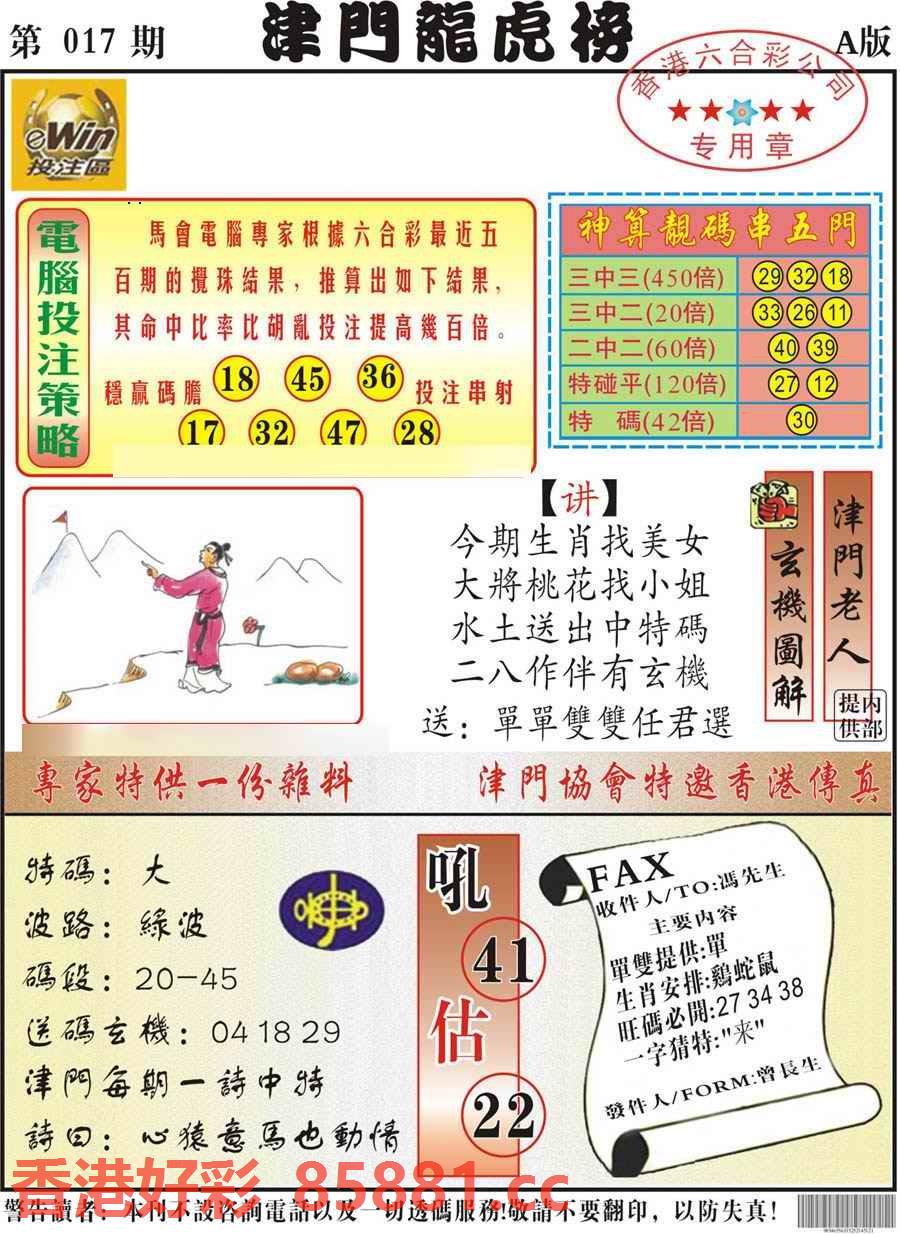 第 017 期
津門龍虎榜
A版
香港六合彩公司
专用章
eWin
投注區
電腦投注策略
馬會電腦專家根據六合彩最近五
百期的攪珠結果，推算出如下結果，
其命中比率比胡亂投注提高幾百倍。
穩贏碼膽 18 45 36 投注串射
17 32 47 28
神算靚碼串五門
三中三(450倍) 29 32 18
三中二(20倍) 33 26 11
二中二(60倍) 40 39
特碰平(120倍) 27 12
特 碼(42倍) 30
【讲】
今期生肖找美女
大將桃花找小姐
水土送出中特碼
二八作伴有玄機
送：單單雙雙任君選
玄機圖解
津門老人
提供
内部
專家特供一份雜料
津門協會特邀香港傳真
特碼：大
波路：綠波
碼段：20-45
送碼玄機：04 18 29
津門每期一詩中特
詩曰：心猿意馬也動情
吼
41
估
22
FAX
收件人/TO:馮先生
主要内容
單雙提供:單
生肖安排:鷄蛇鼠
旺碼必開:27 34 38
一字猜特:"来"
發件人/FORM:曾長生
香港好彩 85881.cc
警告讀者：本刊不設咨詢電話以及一切透碼服務!敬請不要翻印，以防失真!